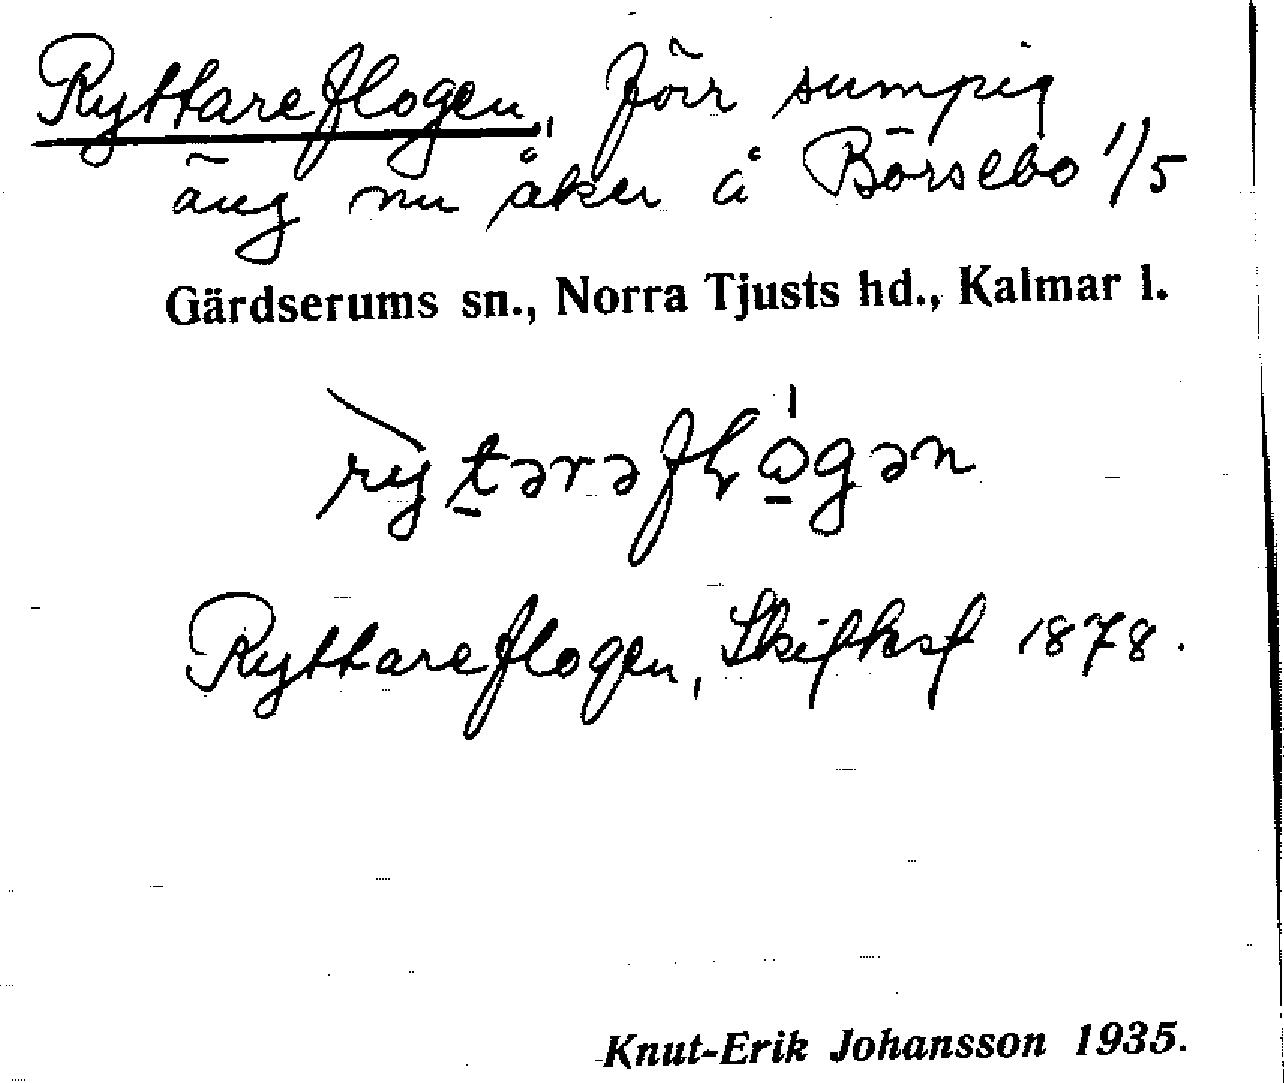 Ryttareflogen, förr sumpig
äng nu åker å Börsebo 1/5
Gärdserums sn., Norra Tjusts hd., Kalmar l.
Ryttareflogen, Skifksf 1878.
Knut-Erik Johansson 1935.